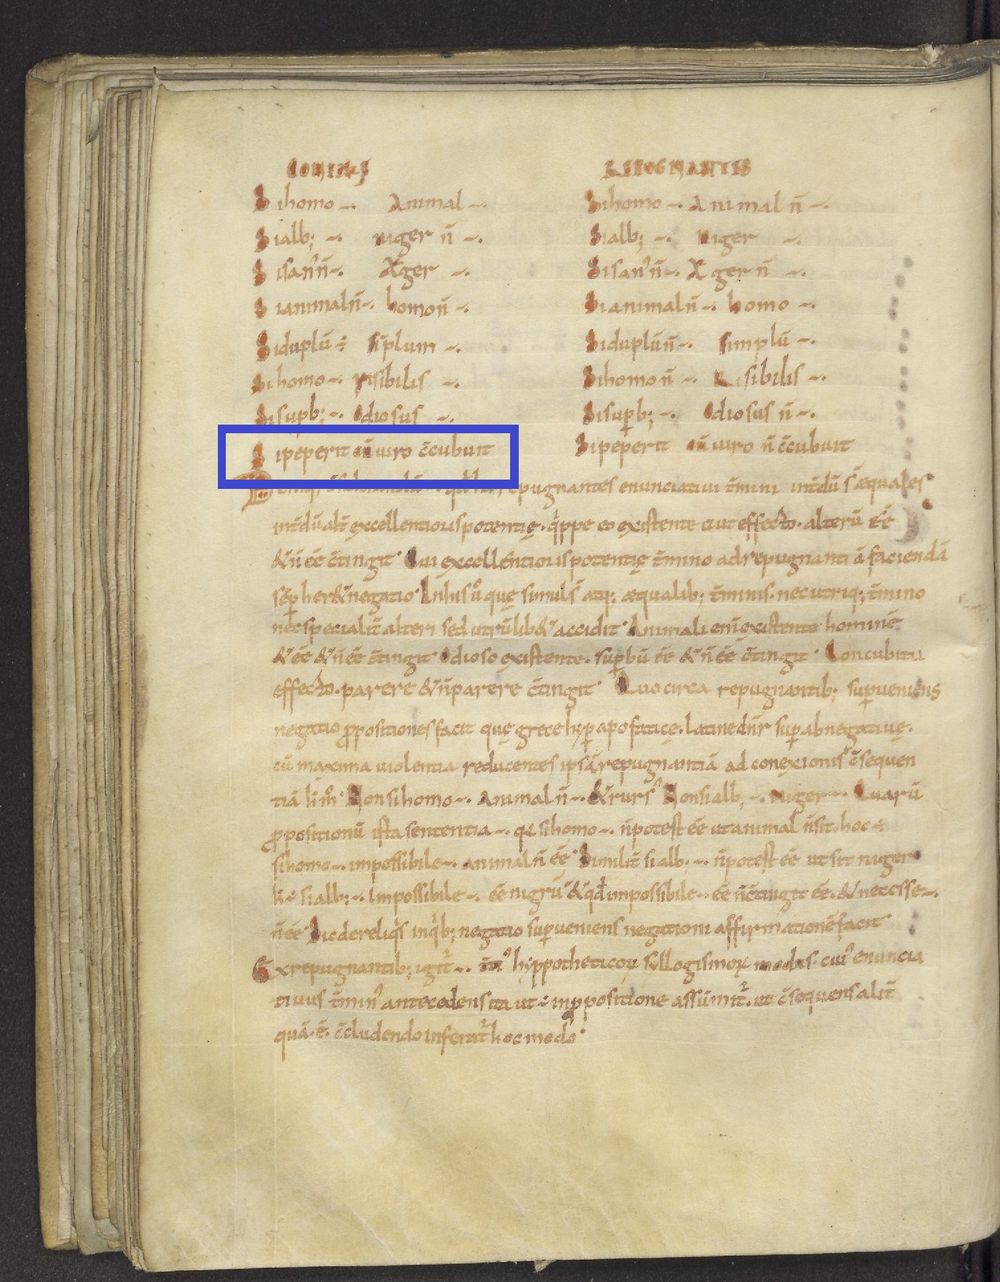 Sihomo ÷ Animal ÷
Sialb; ÷ niger ñ ÷
Sianimalñ ÷ homoñ ÷
Siduplū ÷ siplum ÷
Sihomo ÷ risibilis ÷
Sisupb; ÷ Odiosus ÷
Sipeperit cūuiro c̄cubuit
REPUGNANTES
Sihomo ÷ Animal ñ ÷
Sialb; ÷ niger ÷
Sianimalñ ÷ homo ÷
Siduplūñ ÷ simplū ÷
Sihomo ñ ÷ Risibilis ÷
Sisupb; ÷ Odiosus ñ ÷
Sipeperit cūuiro ñ c̄cubuit
repugnantes enunciatiui t̄mini int̄dū s̄ æquales
int̄dū alt̄ excellentioris potentię. q'ppe eo existente cui effecto. alterū ēē
&ñ ēē c̄tingit. Cui excellentioris potentię t̄mino adrepugnantiā faciendā
sēp her& negatio. æqualib; t̄minis. nec utriq; t̄mino
nec specialit̄ alteri sed utrūlib& accidit. Animali enī existente hominē
&ēē &ñ ēē c̄tingit. Odioso existente. supbū ēē &ñ ēē c̄tingit. Concubitu
effecto. parere &ñ parere c̄tingit. Quocirca repugnantib; supueniens
negatio ppositiones facit quę grece latine dn̄r supabnegatiuę.
cū maxima uiolentia reducentes ipsā repugnantiā ad conexionis c̄sequen
tiā h' m°. Non sihomo ÷ Animal ñ ÷ &rurs' Non sialb; ÷ niger ÷ Quarū
ppositionū ista sententia ÷ qā sihomo ÷ ñ potest ēē ut animal ñ sit. hoc ÷
sihomo ÷ impossibile ÷ animal ñ ēē. Similit̄ si alb; ÷ ñ potest ēē ut sit niger
h' ÷ si alb; ÷ Impossibile ÷ ēē nigrū. &qđ impossibile ÷ ēē ñ c̄tingit ēē. & necesse ÷
ñ ēē. Sic de reliq's inq'b; negatio supueniens negationi affirmationē facit
Ex repugnantib; igit̄ ÷ hyppotheticoꝝ syllogismoꝝ modus. cui' enuncia
tiuus t̄min' antecedens ita ut ÷ in ppositione assūmit̄. ut c̄sequens alit̄
quā ē. c̄cludendo infertur hoc modo.